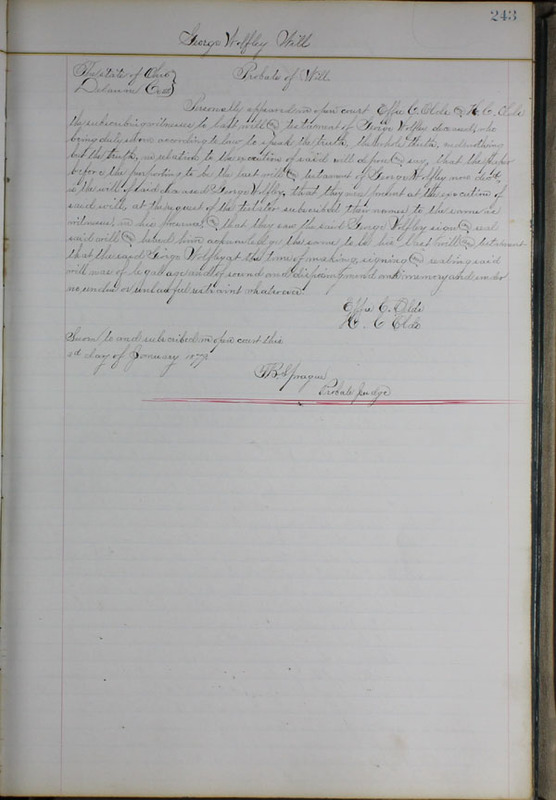 243
George Wolfley Will
The State of Ohio }
Delaware Co ss }
Probate of Will
Personally appeared in open court Effie C. Olds & H. C. Olds
the subscribing witnesses to last will & testament of George Wolfley deceased, who
being duly sworn according to law to speak the truth, the whole truth, and nothing
but the truth, in relation to the execution of said will depose & say, that the paper
before, the purporting to be the last will & testament of George Wolfley now decd,
is the will of said deceased George Wolfley, that they were present at the execution of
said will, at the request of the testator subscribed their names to the same as
witnesses, in his presence, & that they saw the said George Wolfley sign & seal
said will & heard him acknowledge the same to be his last will & testament
that the said George Wolfley at the time of making, signing & sealing said
will was of legal age and of sound and disposing mind and memory and under
no undue or unlawful restraint whatsoever.
Effie C. Olds
H. C Olds
Sworn to and subscribed in open court this
2d day of January
Sprague
Probate Judge